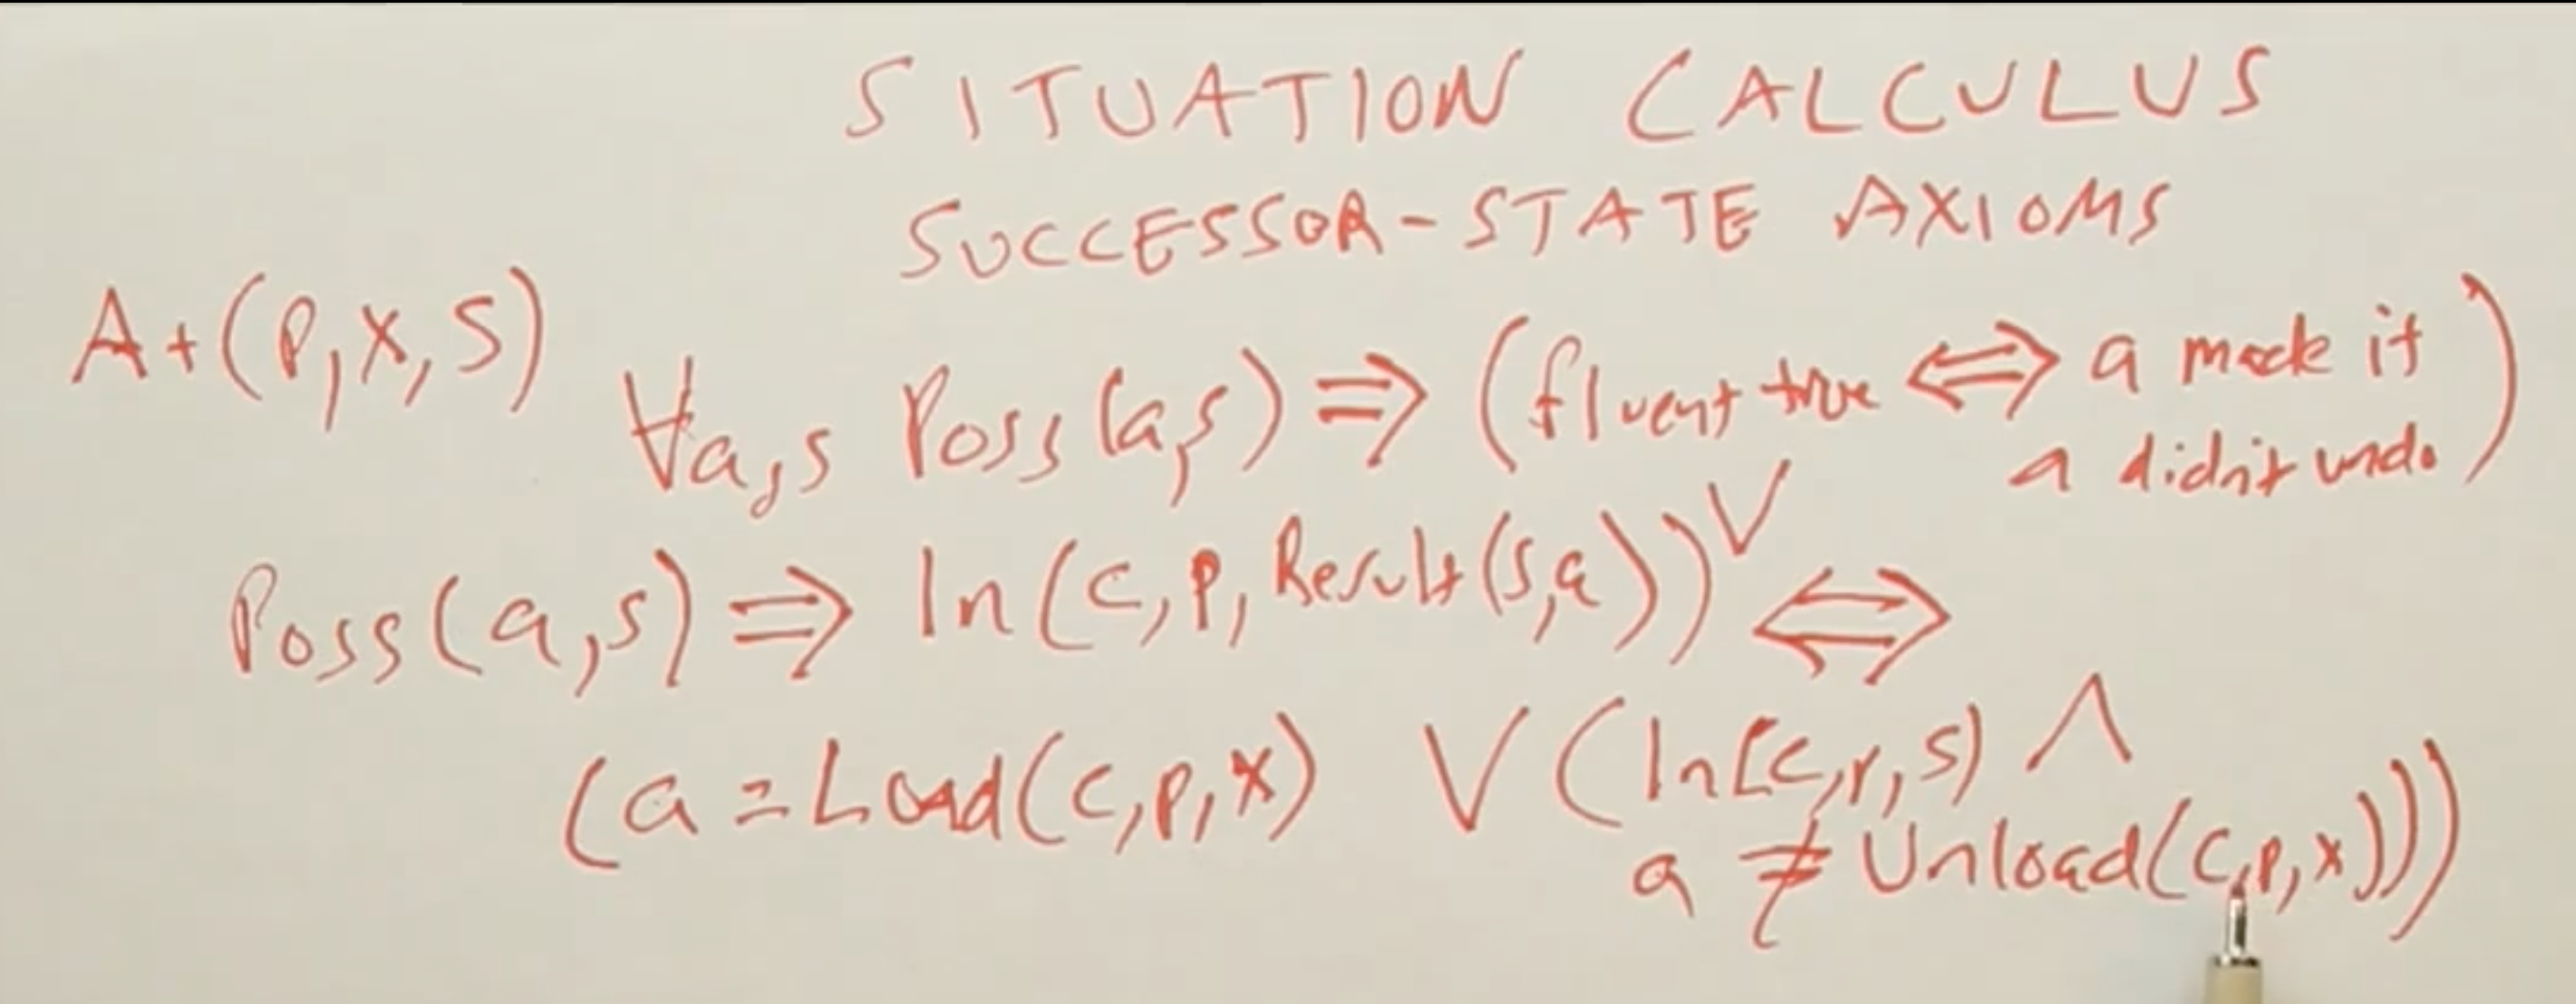 SITUATION CALCULUS
SUCCESSOR-STATE AXIOMS
At(p,x,s)
∀a,s Poss(a,s) ⇒ (fluent true ⇔ a made it
∨ a didn't undo)
Poss(a,s) ⇒ In(c,p,Result(s,a)) ⇔
(a=Load(c,p,x) ∨ (In(c,p,s) ∧
a ≠ Unload(c,p,x)))